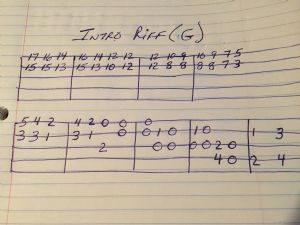 INTRO RIFF (G)
17 16 14 16 14 12 12 12 10 9 10 9 7 5
15 15 13 15 13 10 12 12 8 8 8 8 7 3
5 4 2 4 2 0 0 0
3 3 1 3 1 0 0 1 0 1 0 1 3
2 0 0 0 0 2 0
4 0 2 4